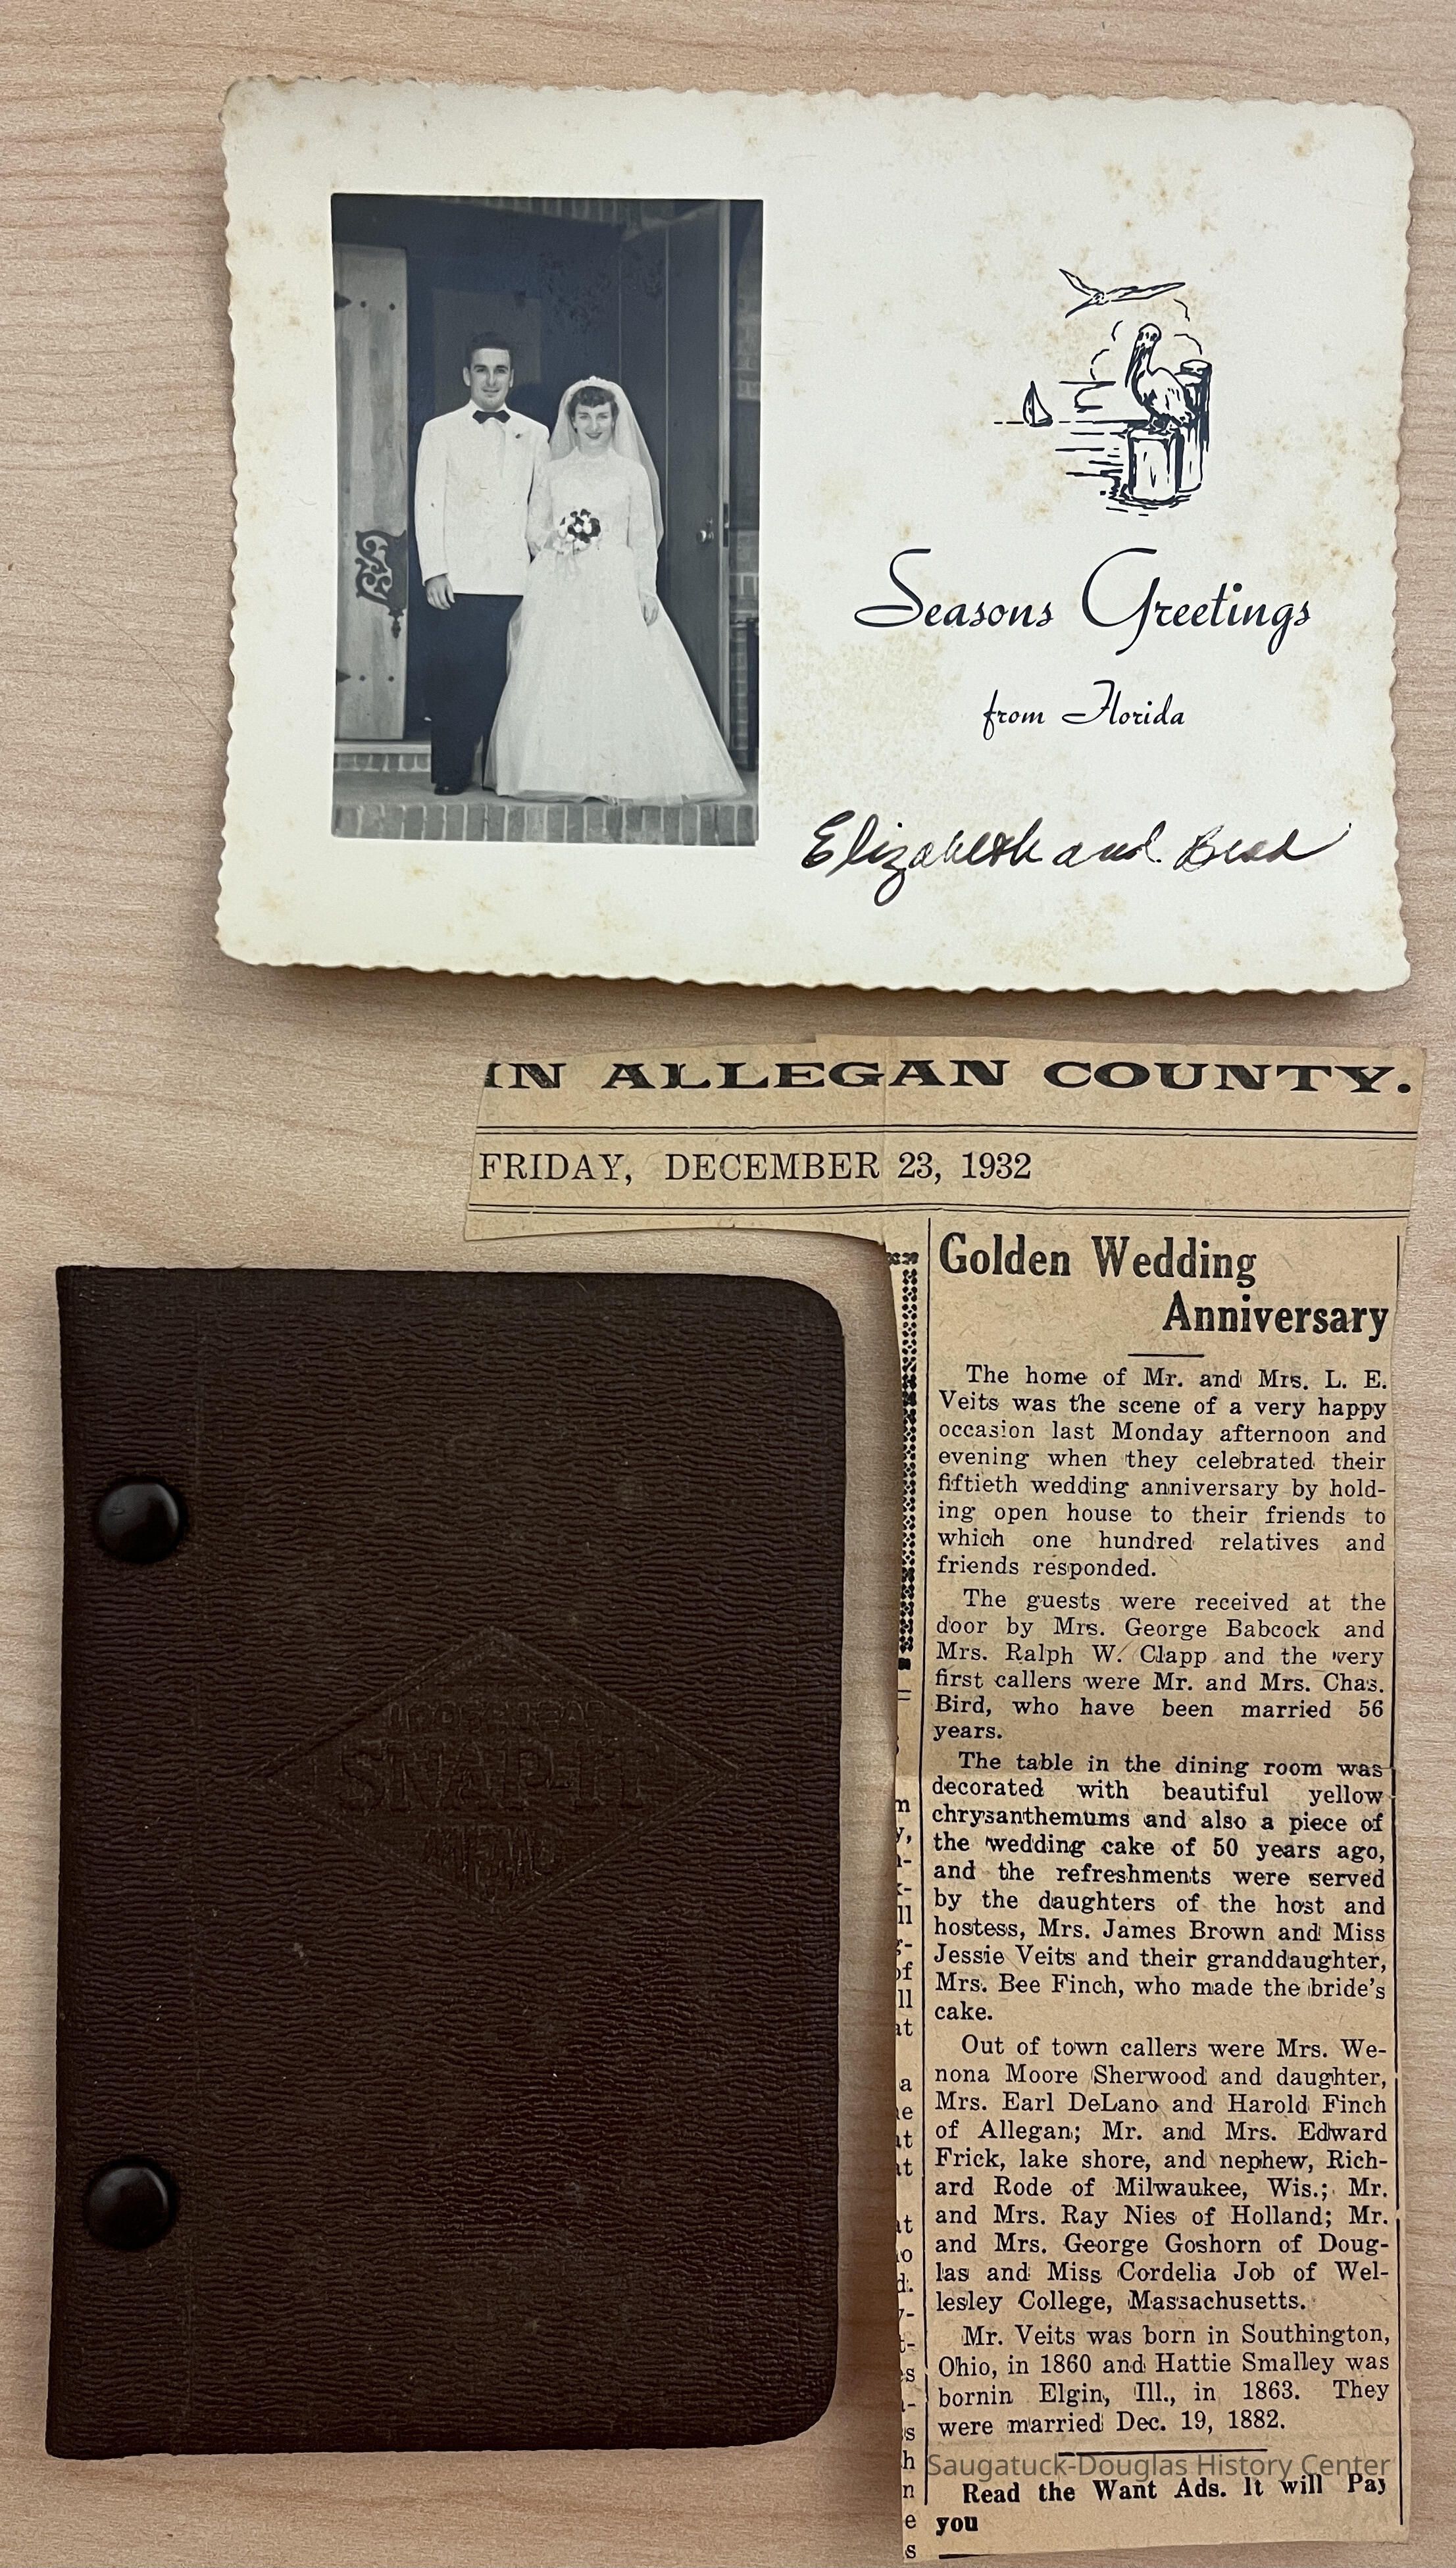 Seasons Greetings
from Florida
Elizabeth and Brad
IN ALLEGAN COUNTY.
FRIDAY, DECEMBER 23, 1932
Golden Wedding
Anniversary
The home of Mr. and Mrs. L. E.
Veits was the scene of a very happy
occasion last Monday afternoon and
evening when they celebrated their
fiftieth wedding anniversary by hold-
ing open house to their friends to
which one hundred relatives and
friends responded.
The guests were received at the
door by Mrs. George Babcock and
Mrs. Ralph W. Clapp and the very
first callers were Mr. and Mrs. Chas.
Bird, who have been married 56
years.
The table in the dining room was
decorated with beautiful yellow
chrysanthemums and also a piece of
the wedding cake of 50 years ago,
and the refreshments were served
by the daughters of the host and
hostess, Mrs. James Brown and Miss
Jessie Veits and their granddaughter,
Mrs. Bee Finch, who made the bride's
cake.
Out of town callers were Mrs. We-
nona Moore Sherwood and daughter,
Mrs. Earl DeLano and Harold Finch
of Allegan; Mr. and Mrs. Edward
Frick, lake shore, and nephew, Rich-
ard Rode of Milwaukee, Wis.; Mr.
and Mrs. Ray Nies of Holland; Mr.
and Mrs. George Goshorn of Doug-
las and Miss Cordelia Job of Wel-
lesley College, Massachusetts.
Mr. Veits was born in Southington,
Ohio, in 1860 and Hattie Smalley was
bornin Elgin, Ill., in 1863. They
were married Dec. 19, 1882.
Saugatuck-Douglas History Center
Read the Want Ads. It will Pay
you